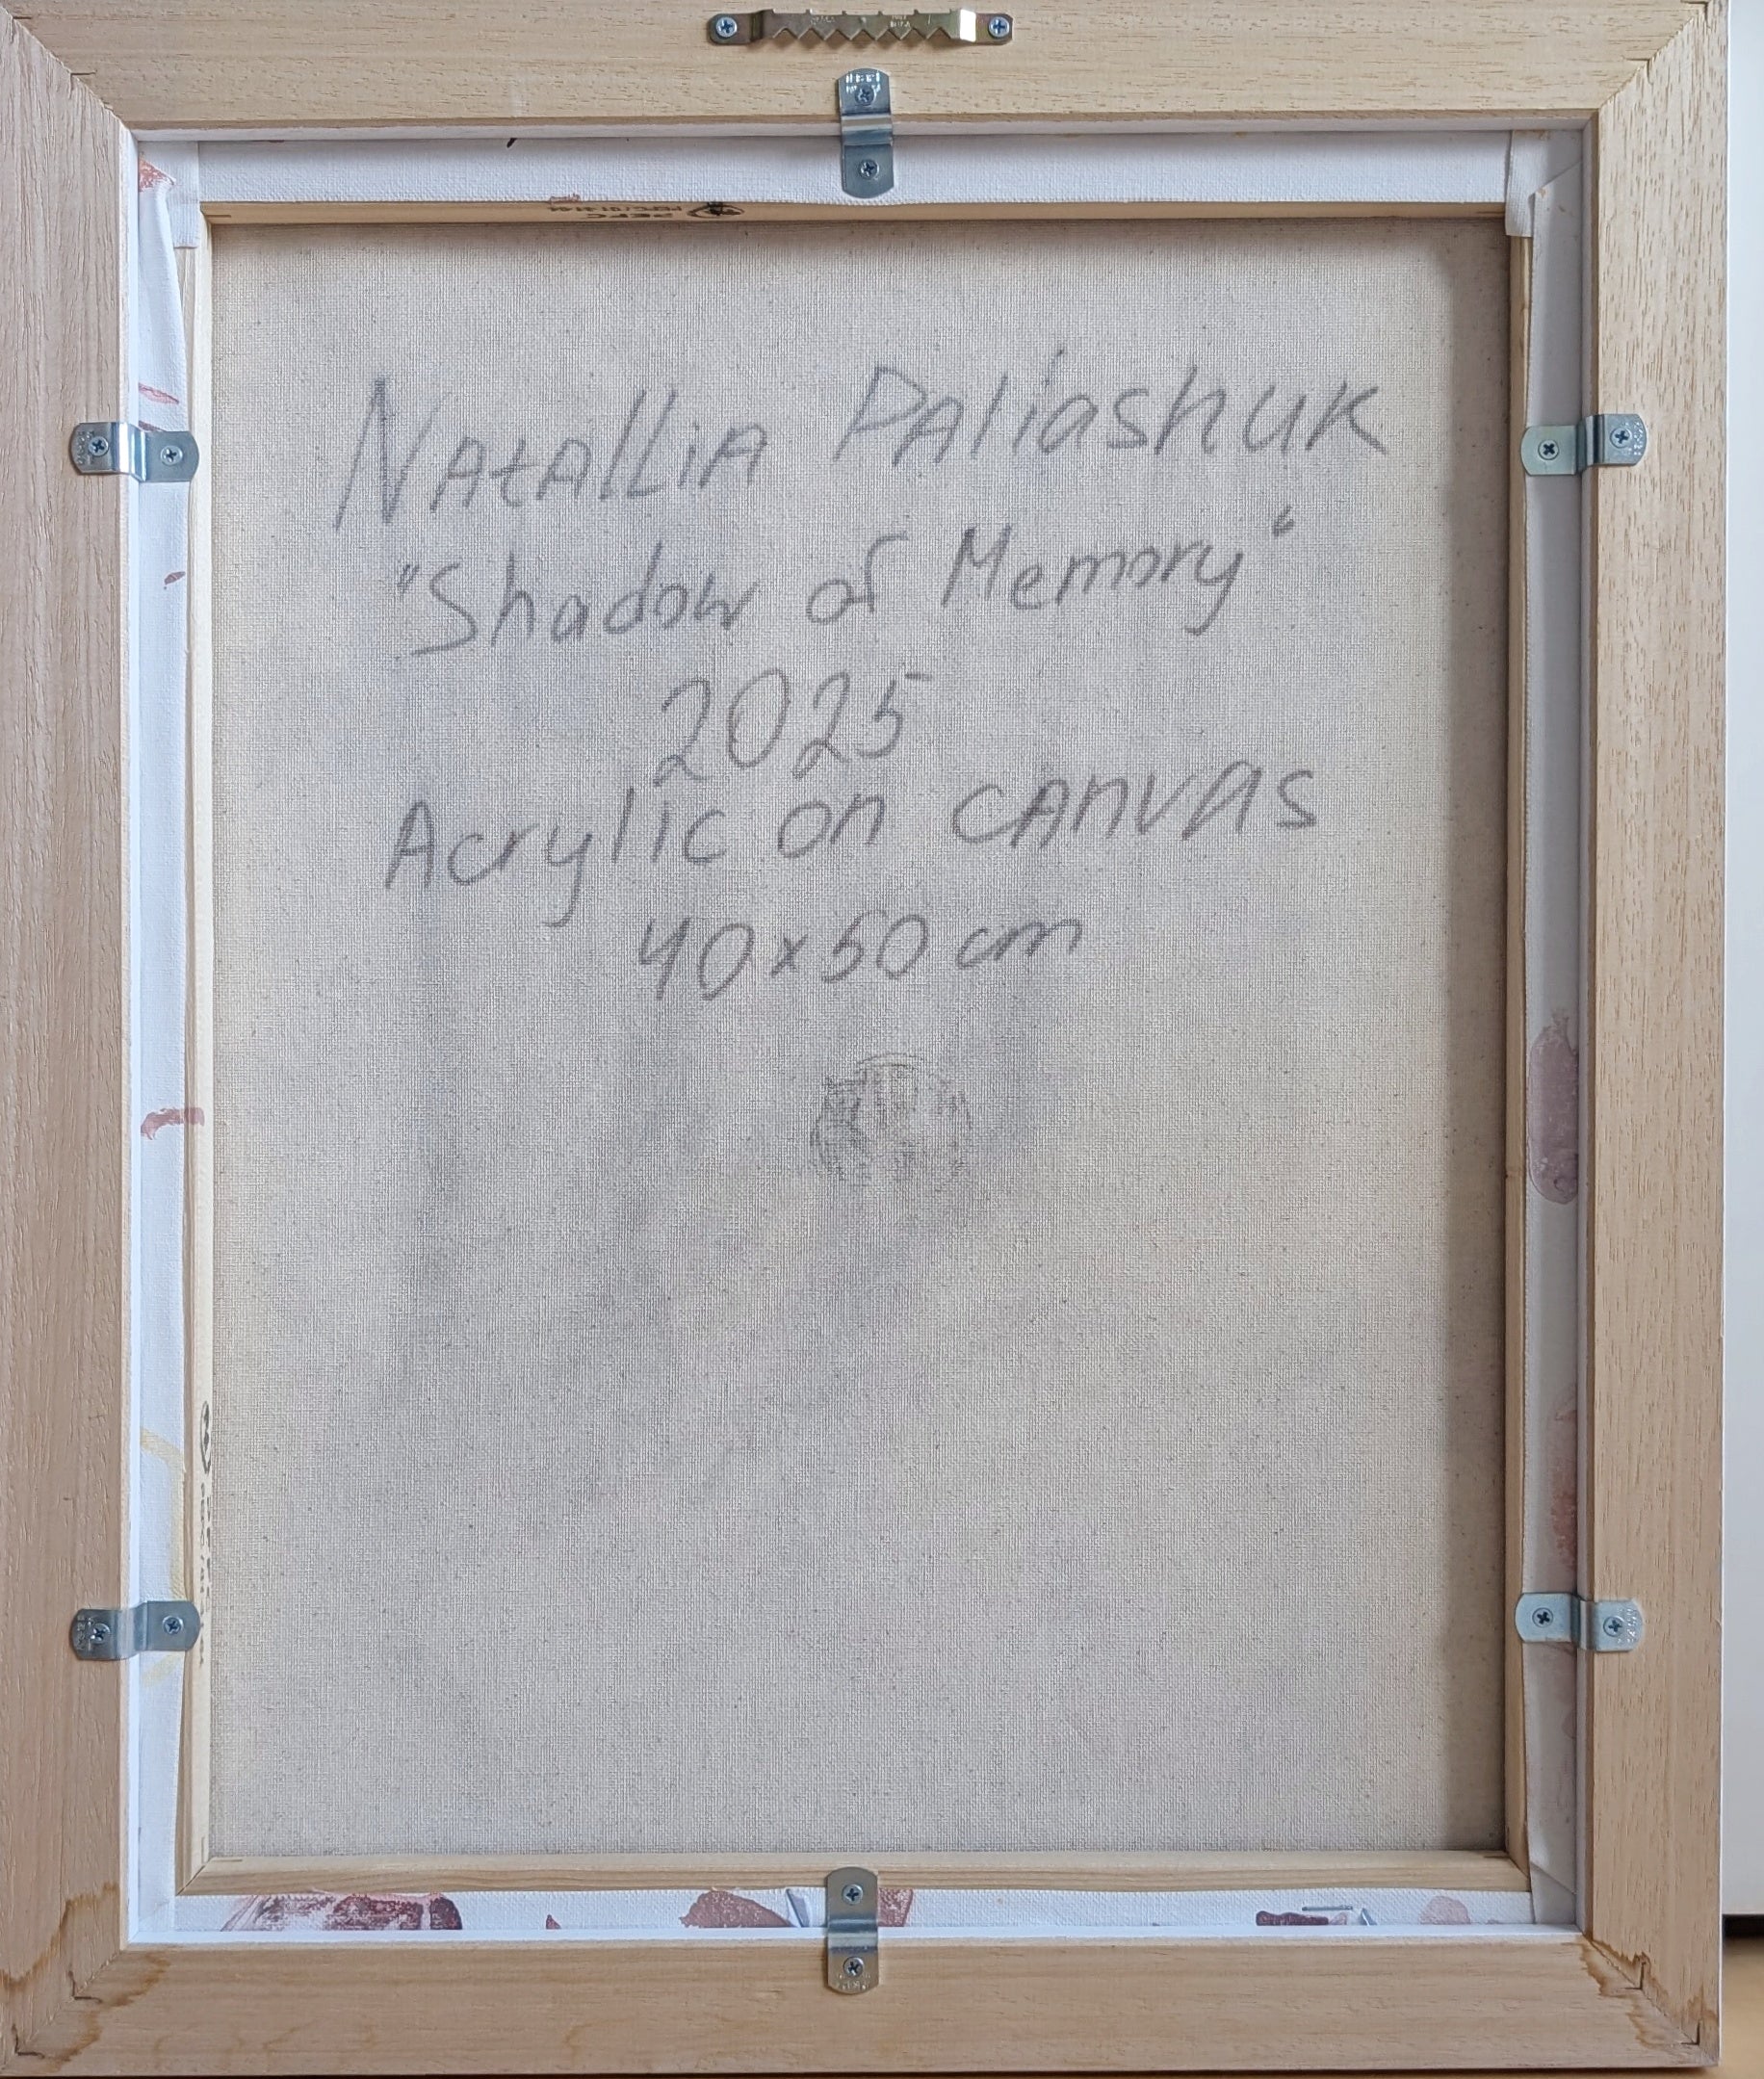 PEFC
NAtAllIA PAliashuk
"Shadow of Memory"
2025
Acrylic on CAnvas
40x50 cm